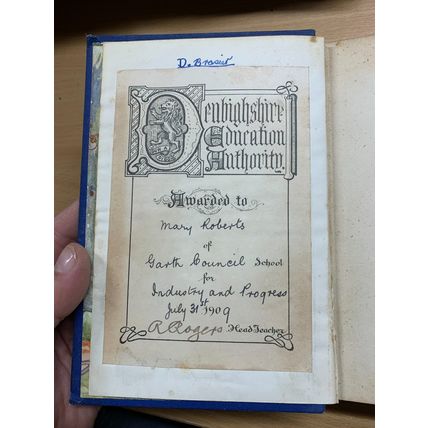 D. Brasier
Denbighshire
Education
Authority.
Awarded to
Mary Roberts
of
Garth Council School
for
Industry and Progress
July 31st 1909
R Rogers Head Teacher